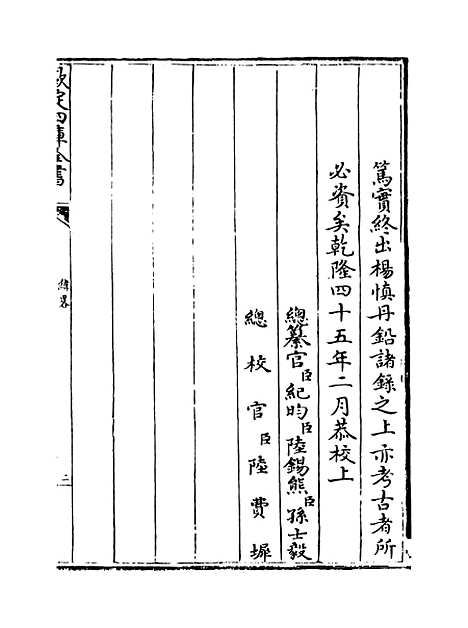 篤實終出楊慎丹鉛諸錄之上亦考古者所
必資矣乾隆四十五年二月恭校上
總纂官臣紀昀臣陸錫熊臣孫士毅
總校官臣陸費墀
欽定四庫全書
緯略
二